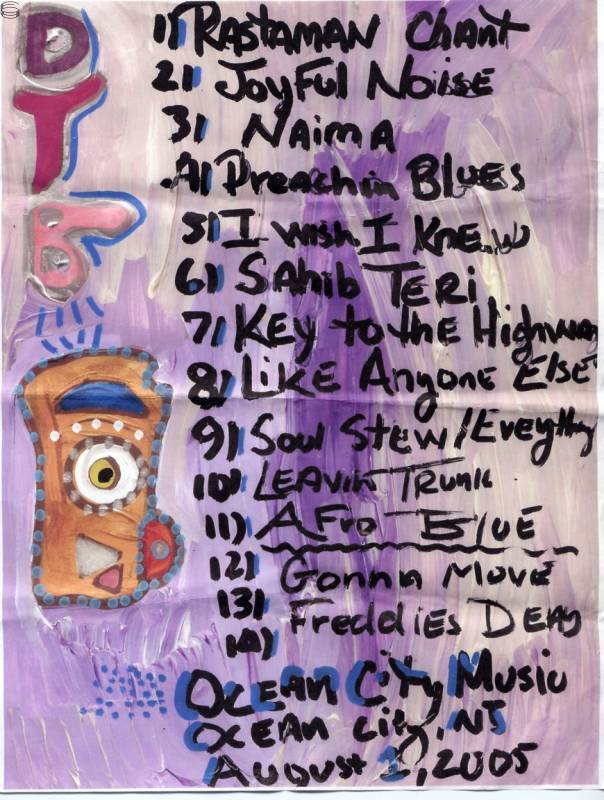 DTB
1) RASTAMAN CHANT
2) JOYFUL NOISE
3) NAIMA
4) Preachin BLUES
5) I wish I KNEW
6) SAhib TERi
7) KEY to the Highway
8) LiKE ANyoNE ELSE
9) Soul STEW/Eveything
10) LEAVIN TRUNK
11) AFro BLUE
12) Gonna MovE
13) FREddiES DEAD
14)
OCEAN CiTy Music
OCEAN CiTy, NJ
AUGUST 2, 2005